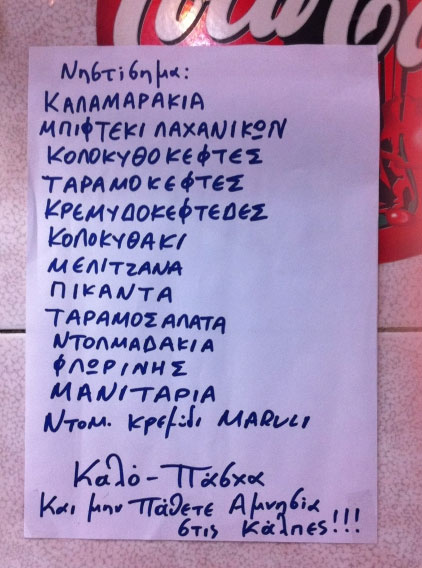 Coca-Cola
Νηστίσημα:
ΚΑΛΑΜΑΡΑΚΙΑ
ΜΠΙΦΤΕΚΙ ΛΑΧΑΝΙΚΩΝ
ΚΟΛΟΚΥΘΟΚΕΦΤΕΣ
ΤΑΡΑΜΟΚΕΦΤΕΣ
ΚΡΕΜΥΔΟΚΕΦΤΕΔΕΣ
ΚΟΛΟΚΥΘΑΚΙ
ΜΕΛΙΤΖΑΝΑ
ΠΙΚΑΝΤΑ
ΤΑΡΑΜΟΣΑΛΑΤΑ
ΝΤΟΛΜΑΔΑΚΙΑ
ΦΛΩΡΙΝΗΣ
ΜΑΝΙΤΑΡΙΑ
Ντομ. Κρεμύδι MARULI
Καλό-Πάσχα
Και μην Πάθετε Αμνησία
στις Κάλπες!!!